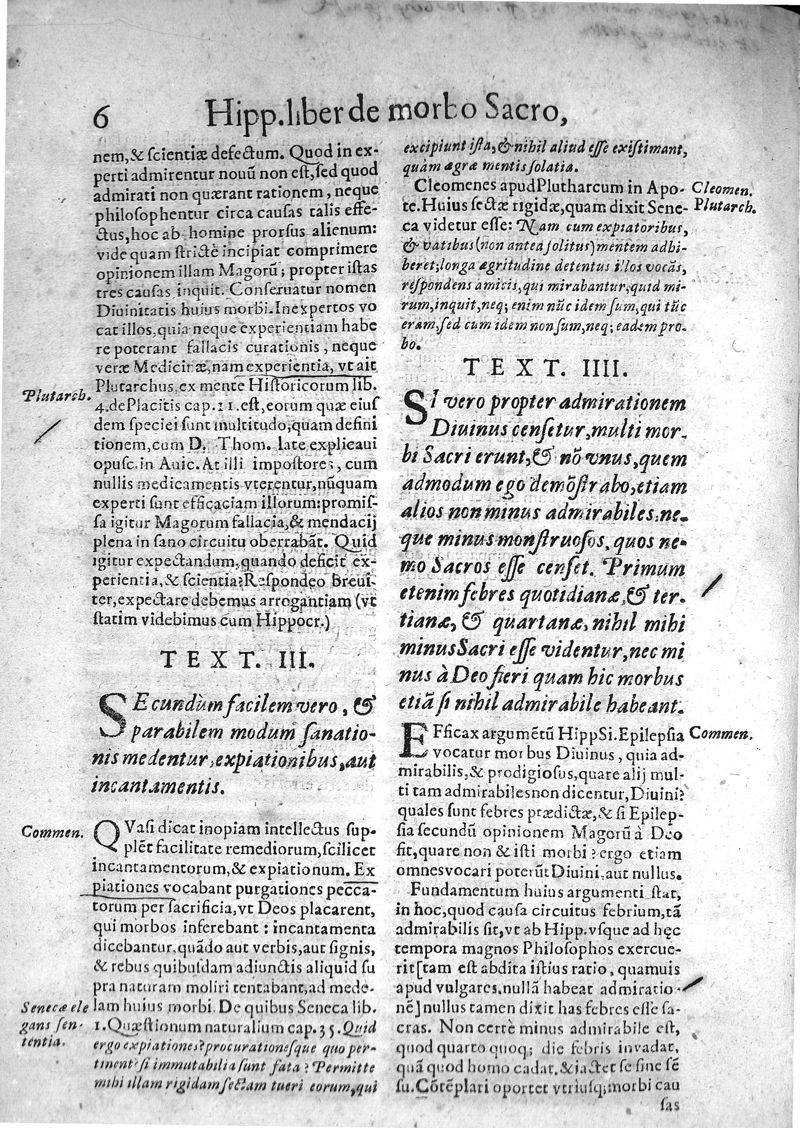 6 Hipp.liber de morbo Sacro,
nem,& scientiæ defectum. Quod in ex-
perti admirentur nouũ non est,sed quod
admirati non quærant rationem, neque
philosophentur circa causas talis effe-
ctus,hoc ab homine prorsus alienum:
vide quam strictè incipiat comprimere
opinionem illam Magorũ; propter istas
tres causas inquit. Conseruatur nomen
Diuinitatis huius morbi. Inexpertos vo
cat illos,quia neque experientiam habe
re poterant fallacis curationis, neque
veræ Medicinæ,nam experientia, vt ait
Plutarchus,ex mente Historicorum lib.
4.de Placitis cap.11.est,eorum quæ eius
dem speciei sunt multitudo;quam defini
tionem,cum D. Thom. late explicaui
opusc.in Auic. At illi impostores, cum
nullis medicamentis vterentur,nũquam
experti sunt efficaciam illorum:promis-
sa igitur Magorum fallacia,& mendacij
plena in sano circuitu oberrabãt. Quid
igitur expectandum,quando deficit ex-
perientia,& scientia?Respondeo Breui-
ter,expectare debemus arrogantiam (vt
statim videbimus cum Hippocr.)
Plutarch.
TEXT. III.
SEcundùm facilem vero, &
parabilem modum sanatio-
nis medentur, expiationibus,aut
incantamentis.
Commen.
QVasi dicat inopiam intellectus sup-
plēt facilitate remediorum,scilicet
incantamentorum,& expiationum. Ex
piationes vocabant purgationes pecca-
torum per sacrificia,vt Deos placarent,
qui morbos inferebant : incantamenta
dicebantur.quãdo aut verbis,aut signis,
& rebus quibusdam adiunctis aliquid su
pra naturam moliri tentabant,ad mede-
lam huius morbi. De quibus Seneca lib.
1.Quæstionum naturalium cap.35.Quid
ergo expiationes?procurationesque quo per-
tinent si immutabilia sunt fata? Permitte
mihi illam rigidam sectam tueri eorum,qui
Senecæ ele
gans sen-
tentia.
excipiunt ista,& nihil aliud esse existimant,
quam ægræ mentis solatia.
Cleomenes apud Plutharcum in Apo-
te.Huius sectæ rigidæ,quam dixit Sene-
ca videtur esse: Nam cum expiatoribus,
& vatibus (non antea solitus) mentem adhi-
beret;longa ægritudine detentus illos vocãs,
respondens amicis,qui mirabantur,quid mi-
rum,inquit,neq; enim nũc idem sum,qui tũc
eram,sed cum idem non sum,neq; eadem pro-
bo.
Cleomen.
Plutarch.
TEXT. IIII.
SI vero propter admirationem
Diuinus censetur,multi mor-
bi Sacri erunt,& nõ vnus, quem
admodum ego demõstrabo,etiam
alios non minus admirabiles.ne-
que minus monstruosos, quos ne-
mo Sacros esse censet. Primum
etenim febres quotidianæ,& ter-
tianæ, & quartanæ, nihil mihi
minus Sacri esse videntur, nec mi
nus à Deo fieri quam hic morbus
etiã si nihil admirabile habeant.
Commen.
EFficax argumētũ HippSi.Epilepsia
vocatur morbus Diuinus, quia ad-
mirabilis,& prodigiosus,quare alij mul-
ti tam admirabiles non dicentur,Diuini?
quales sunt febres prædictæ,& si Epilep-
sia secundũ opinionem Magorũ à Deo
fit,quare non & isti morbi ? ergo etiam
omnes vocari poterũt Diuini,aut nullus.
Fundamentum huius argumenti stat,
in hoc,quod causa circuitus febrium,tã
admirabilis sit,vt ab Hipp.vsque ad hęc
tempora magnos Philosophos exercue-
rit[tam est abdita istius ratio, quamuis
apud vulgares.nullã habeat admiratio-
nē] nullus tamen dixit has febres esse sa-
cras. Non certè minus admirabile est,
quod quarto quoq; die febris inuadat,
quã quod homo cadat,& iactet se sine sē
su. Cõtēplari oportet vtriusq;morbi cau
sas